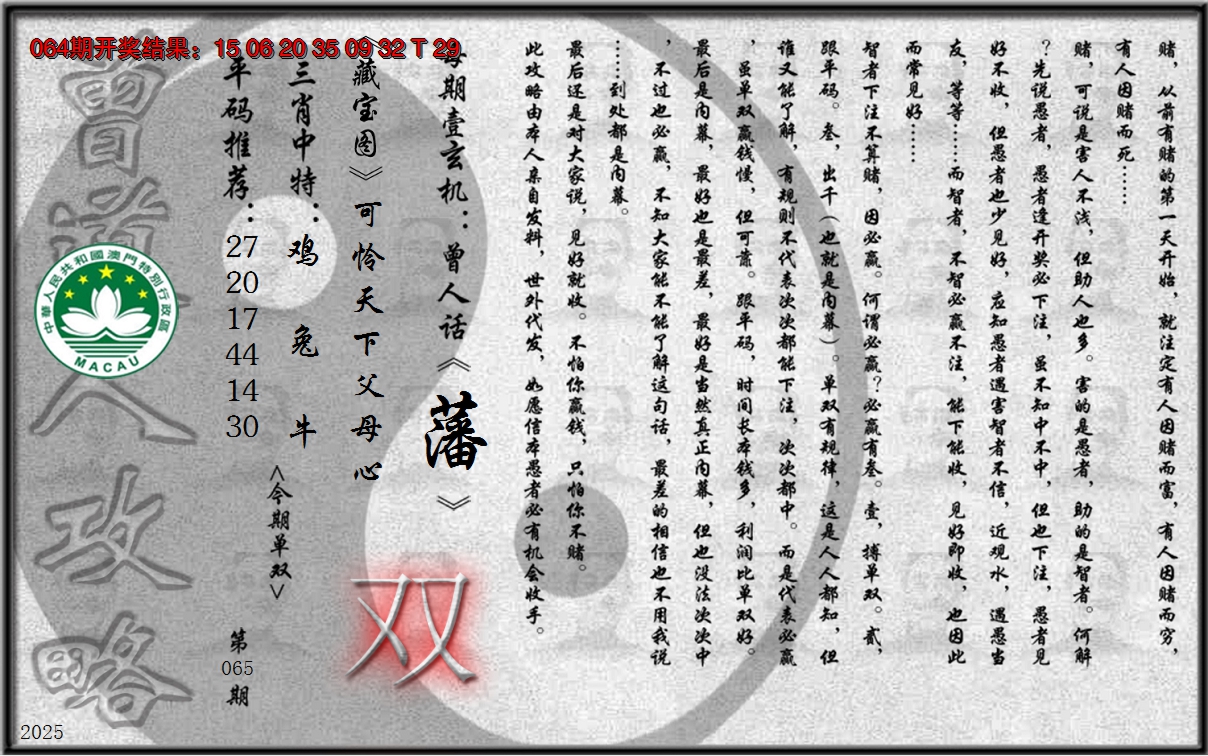 064期开奖结果：15 06 20 35 09 32 T 29
赌，从前有赌的第一天开始，就注定有人因赌而富，有人因赌而穷，
有人因赌而死……
赌，可说是害人不浅，但助人也多。害的是愚者，助的是智者。何解
？先说愚者，愚者逢开奖必下注，虽不知中不中，但也下注，愚者见
好不收，但愚者也少见好，应知愚者遇害智者不信，近观水，遇愚当
友，等等……而智者，不智必赢不注，能下能收，见好即收，也因此
而常见好……
智者下注不算赌，因必赢。何谓必赢？必赢有叁。壹，搏单双。贰，
跟平码。叁，出千（也就是内幕）。单双有规律，这是人人都知，但
谁又能了解，有规则不代表次次都能下注，次次都中。而是代表必赢
，虽单双赢钱慢，但可靠。跟平码，时间长本钱多，利润比单双好。
最后是内幕，最好也是最差，最好是当然真正内幕，但也没法次次中
，不过也必赢，不知大家能不能了解这句话，最差的相信也不用我说
……到处都是内幕。
最后还是对大家说，见好就收。不怕你赢钱，只怕你不赌。
此攻略由本人亲自发料，世外代发，如愿信本愚者必有机会收手。
每期壹玄机：曾人话《藩》
《藏宝图》可怜天下父母心
双
三肖中特：鸡 兔 牛
<今期单双>
平码推荐：27 20 17 44 14 30
第065期
曾道人攻略
中華人民共和國澳門特別行政區
MACAU
2025